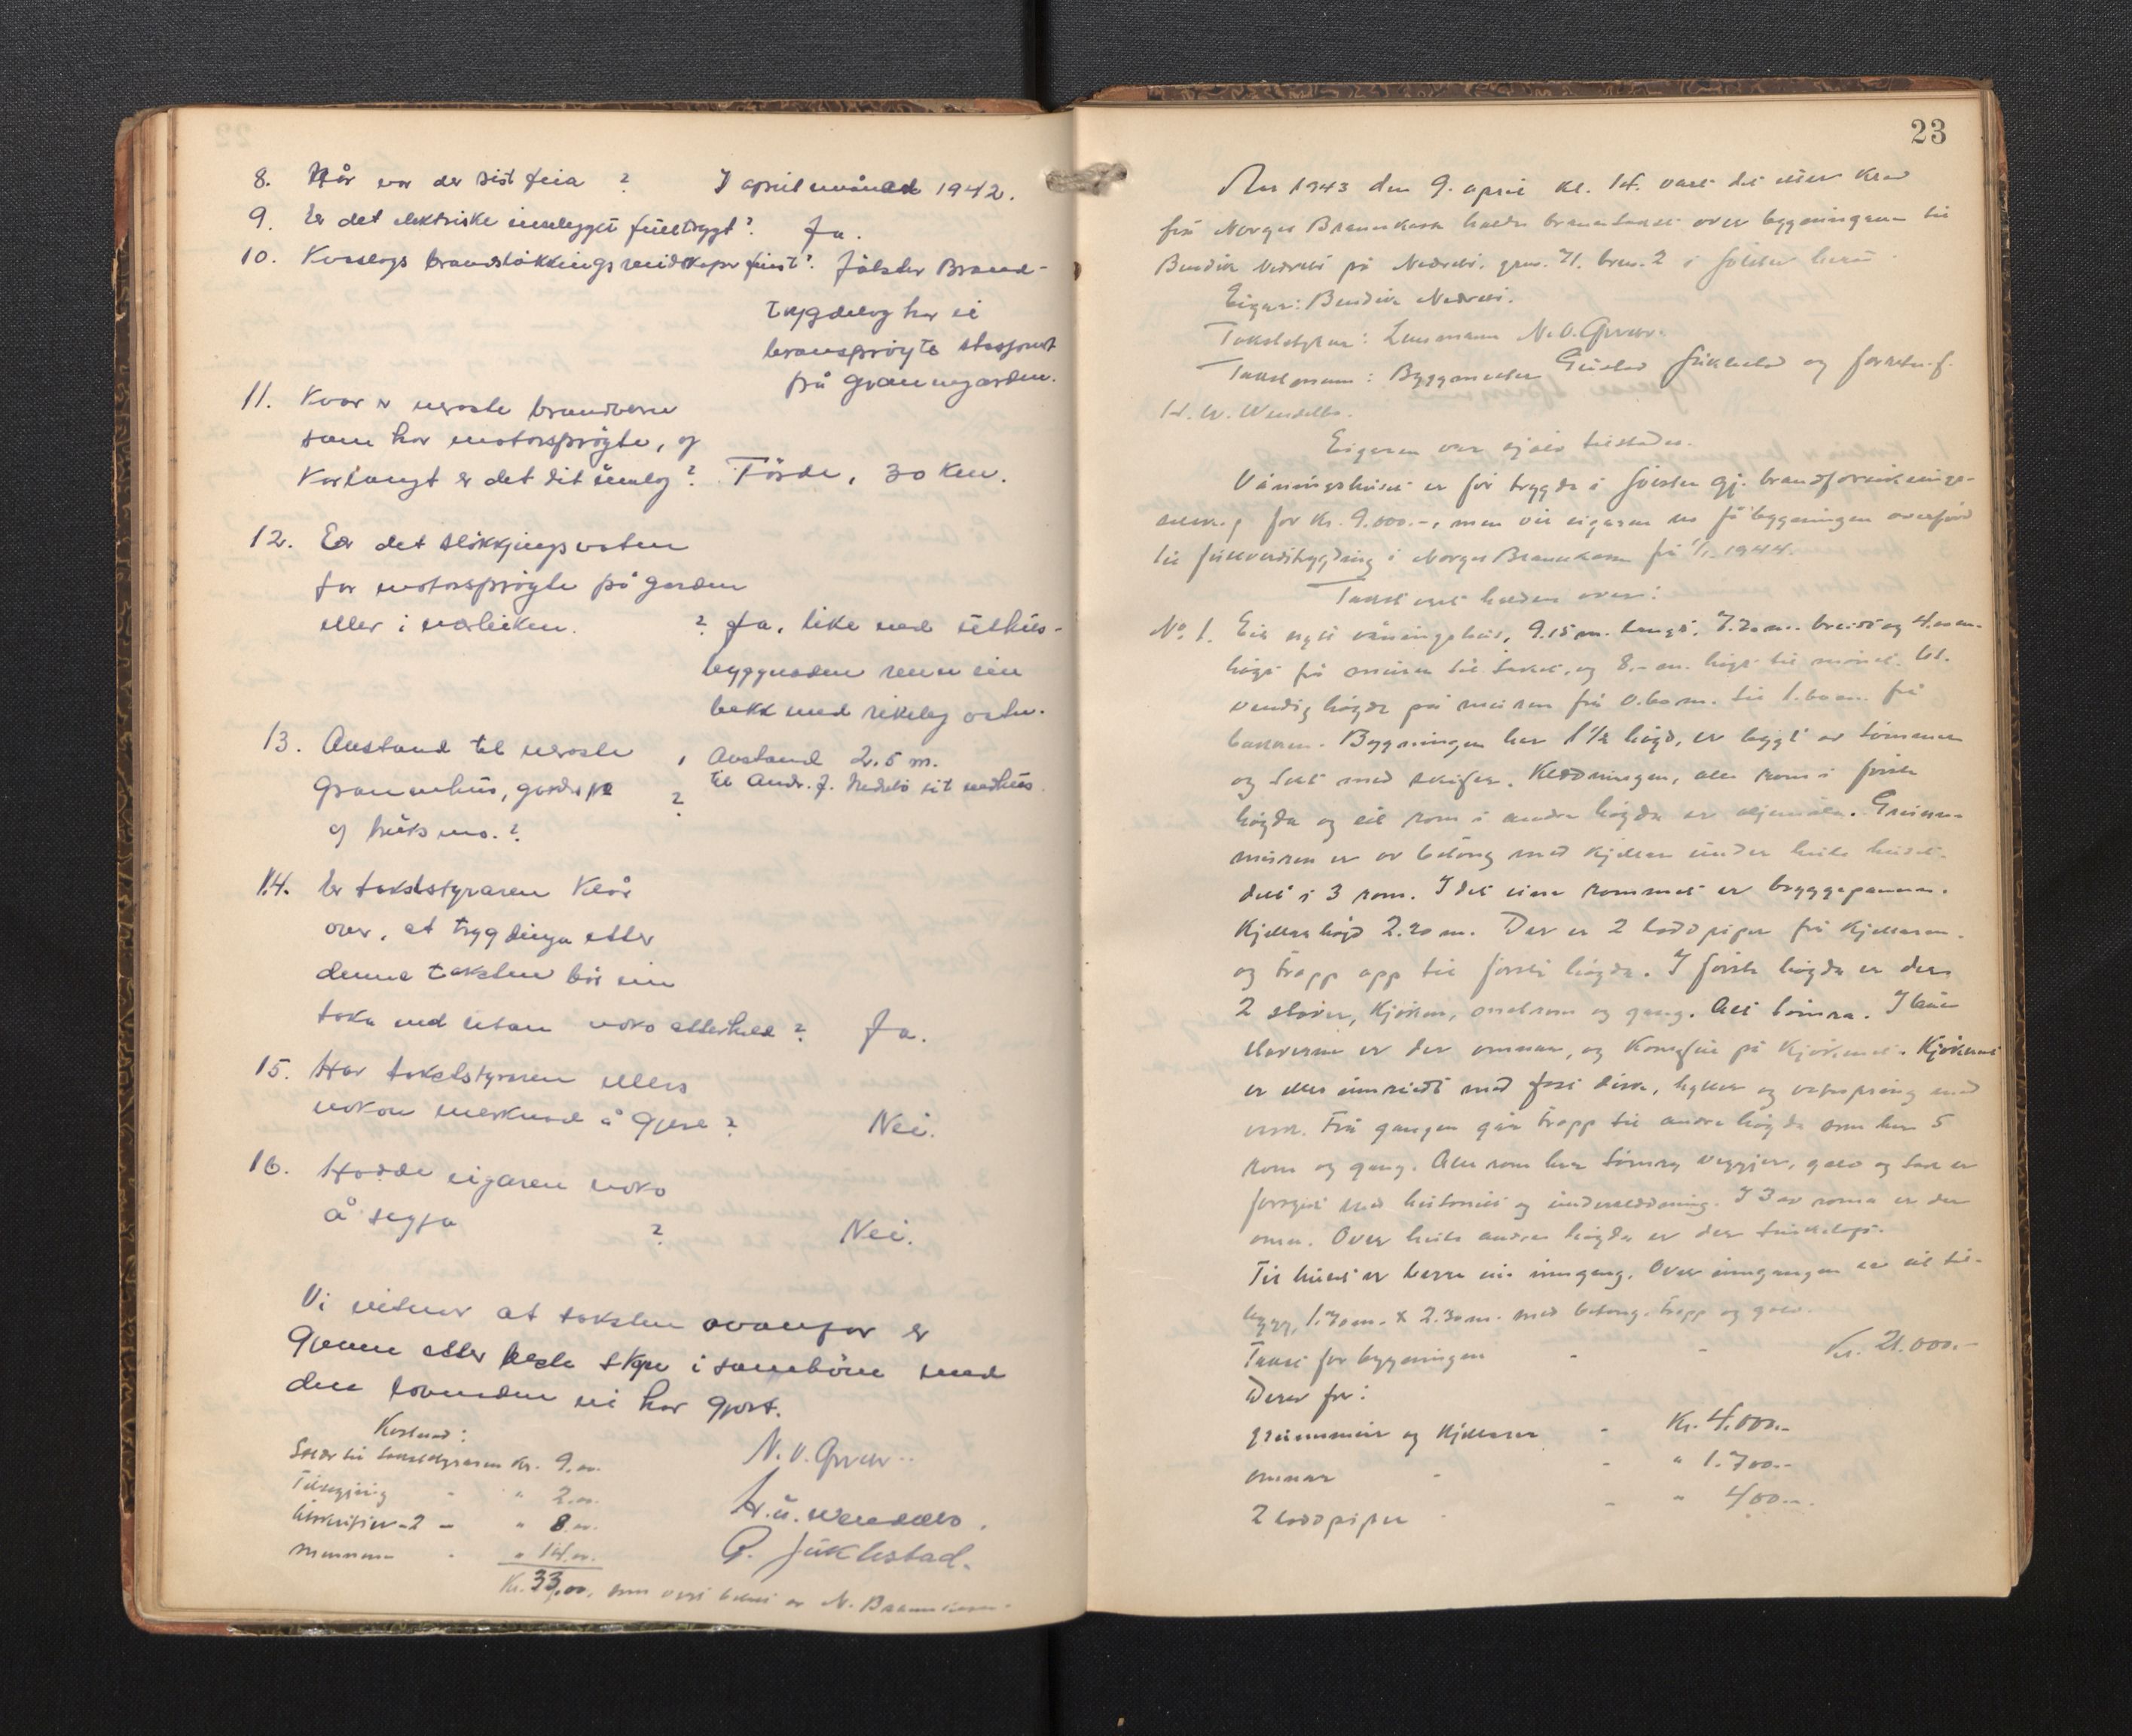 8. Når var der sist feia ? I april månad 1942.
9. Er det elektriske innlegget fulltrygt? Ja.
10. Kvaslags brandsløkkings reidskaper finst? Jølster Brand-
trygdelag har ei
bransprøyte stasjonert
på granngarden.
11. Kvar er næraste brandvern
som har motorsprøyte, og
Korlangt er det dit umlag? Förde, 30 km.
12. Er det sløkkjingsvatn
for motorsprøyte på garden
eller i nærleiken. ? Ja, like ved uthus-
byggnaden renn ein
bekk med rikeleg vatn.
13. Avstand til næraste , Avstand 2.5 m.
Grannehus, gards pl til Andr. J. Nedrebø sit vedhus.
og bruks no. ? ?
14. Er takststyraren klår
over, at trygdinga etter
denne taksten bör ein
taka ved utan noko atterhald ? Ja.
15. Har takststyraren ellers
nokon merknad å gjera ? Nei.
16. Hadde eigaren noko
å segja ? Nei.
Vi vitner at taksten ovanfor er
gjenne etter beste skjøn i samhöve med
den lovnaden vi har gjort.
Kostnad :
til takststyraren Kr. 9.00.
- " 2.00.
Utskrifter - 2 - " 8.00.
- " 14.00.
Kr. 33,00, som vert betalt av N. Brannkasse.
N. O. Gjesdr..
H. U. Wendelbo.
G. Juklestad.
23
År 1943 den 9. april kl. 14. vart det etter krav
frå Norges Brannkasse halde branntakst over bygningane til
Bendik Nedrebö på Nedrebö, gnr. 71. brnr. 2 i Jölster herad.
Eigar: Bendik Nedrebö.
Takststyrar : Lensmann N. O.
Takstmenn : Byggmester Gustav Juklestad og forretn. f.
H. U. Wendelbo.
Eigaren var sjølv tilstades.
Våningshuset er för trygda i Jølster gj. brandforsikrings-
for kr. 9.000.-, men vil eigaren no få bygningen overförd
til fullverditrygding i Norges Brannkasse frå 1/1-1944.
Takst vart halden over :
No. 1. Eit nytt våningshus, 9.15 m. langt, 7.70 m. breidt og 4.00 m.
högt frå muren til taket, og 8.- m. högt til mönet. Ut-
vendig högde på muren frå 0.60 m. til 1.60 m. frå
bakken. Bygningen har 1 1/2 högd, er bygt av tömmer
og tekt med skifer. Kledningen, alle rom i första
högda og eit rom i andra högda er oljemåla. Grunn-
muren er av betong med kjellar under heile huset.
delt i 3 rom. I det eine rommet er bryggepanna.
Kjellarhögd 2.20 m. Der er 2 loddpipar frå Kjellaren.
og trapp opp til första högda. I första högda er der
2 stover, kjöken, matrom og gang. Alt tömra. I båe
stovene er der omnar, og komfur på kjökenet. Kjökenet
er elles innreidt med fast disk, hyller og vatnspring med
vask. Frå gangen går trapp til andra högda som har 5
rom og gang. Alle rom har tömra veggjer, golv og tak er
forsynt med og underkledning. I 3 av roma er der
omn. Over heile andra högda er der
Til huset er berre ein inngang. Over inngangen er eit til-
bygg, 1.70 m. x 2.30 m. med betong. trapp og golv.
Takst for bygningen - - Kr. 21.000.-
Derav for :
grunnmur og Kjellaren - Kr. 4.000.-
omnar - - " 1.700.-
2 loddpipar - - " 400.-